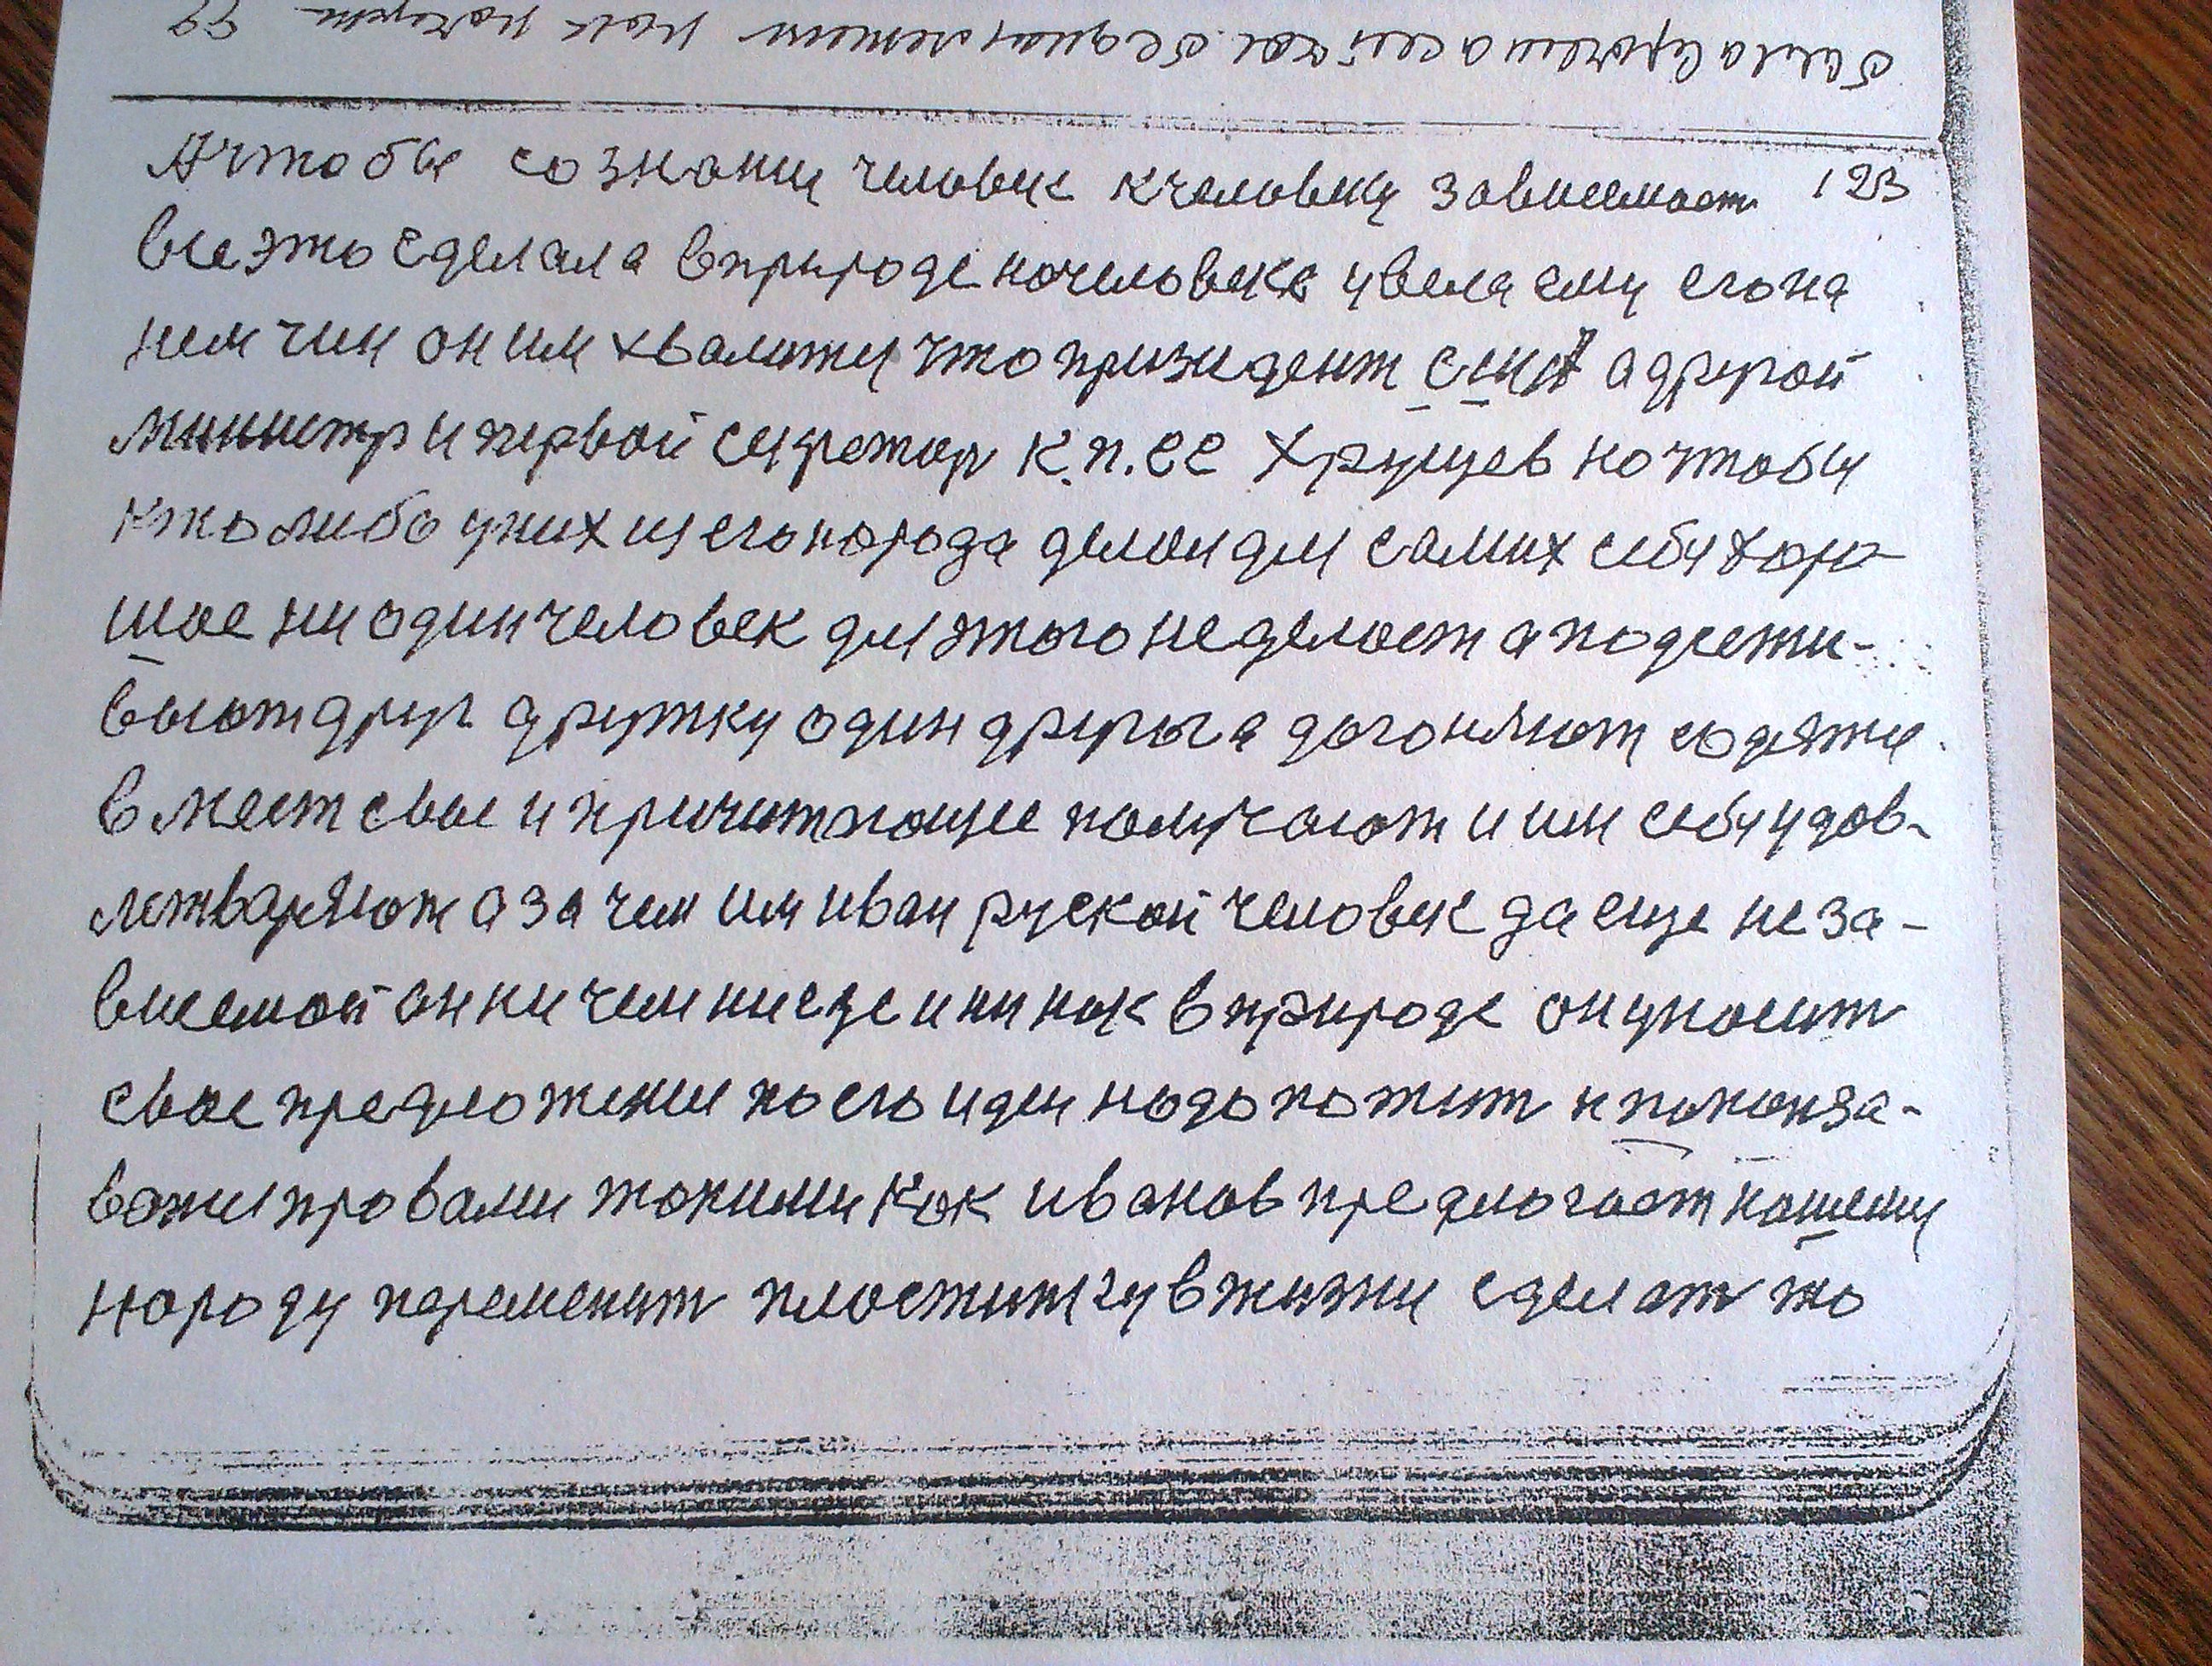 А чтобы сознани человек к человеку зависемост 123
все это сделала в природе на человеке увела ему его на
нем чин он им хвалитьи что призидент сша а другой
министр и первой секретар к.п.сс Хрущев но чтобы
кто либо у них из его народа делал для самих себя хоро-
шое ни один человек для этого не делает а подсежи-
вают друг дружку один другога догоняют содятьи
в мест свое и причитающее получают и им себя удов-
летваряют а зачем им иван руской человек да еще неза-
висемой он ни чем нисде и ни как в природе он уносит
свое предложение по его идеи надо пожит и польза-
ватьи правами такими как иванов предлогает нашему
народу переменит пластинку в жизни сделат то